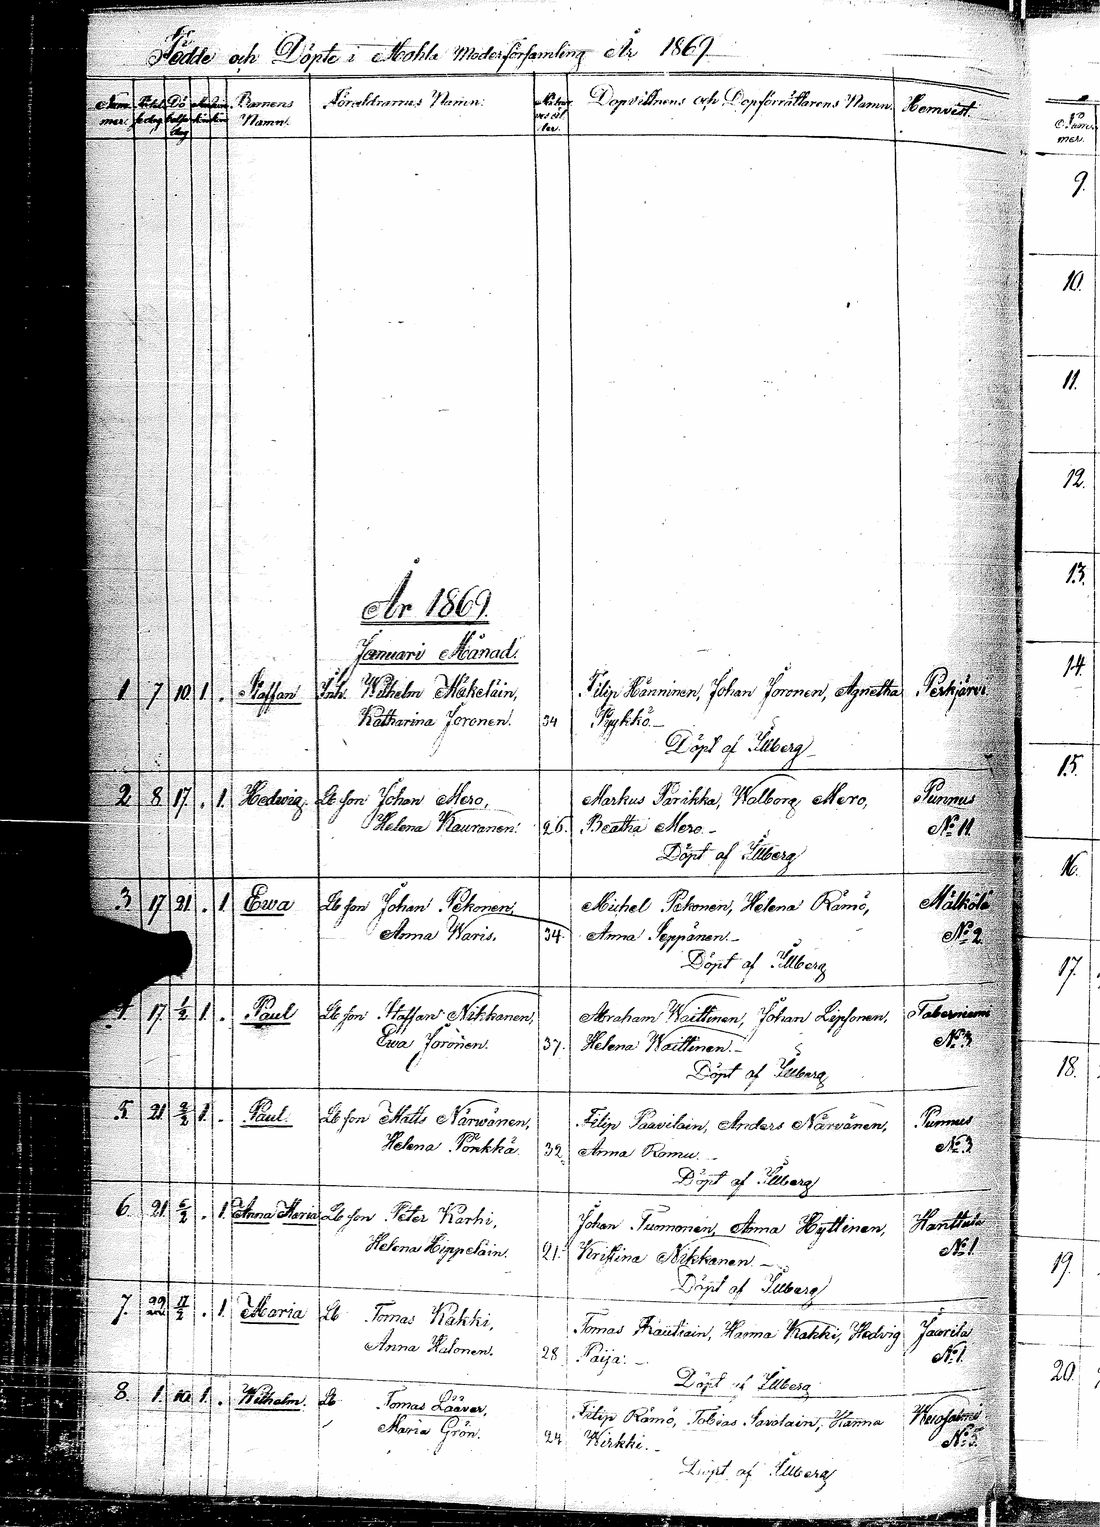 Födde och Döpte i Mohla Moderförsamling År 1869
Num
mer. Födel
sedag Dö
pelse
dag Mankön Qvinkön Barnens
Namn. Föräldrarnas Namn. Mödrar
nes ål
der. Dopvittnens och Dopförrättarens Namn. Hemvist.
År 1869.
Januari Månad.
1 7 10 1 . Staffan Inh. Wilhelm Mäkeläin, Filip Hänninen, Johan Joronen, Agnetha Perkjärvi
Katharina Joronen. 34 Pykkö.
Döpt af Illberg
2 8 17 . 1. Hedwig Lb son Johan Mero, Markus Parikka, Walborg Mero, Punnus
Helena Kauranen. 26. Beatha Mero. No 11.
Döpt af Illberg
3 17 21 . 1 Ewa Lb son Johan Pekonen, Michel Pekonen, Helena Rämö, Mälkölä
Anna Waris. 34. Anna Seppänen. No 2
Döpt af Illberg
4 17 1/2 1 . Paul Lb son Staffan Nikkanen, Abraham Waittinen, Johan Lipsonen, Taberniemi
Ewa Joronen. 37. Helena Waittinen. No 3
Döpt af Illberg
5 21 2/2 1 . Paul. Lb son Matts Närwänen, Filip Paavilain, Anders Närvänen, Punnus
Helena Pönkkä. 32. Anna Romu. No 3
Döpt af Illberg
6. 21 6/2 . 1. Anna Maria Lb son Peter Karhi, Johan Tunnonen, Anna Hyttinen, Hanttula
Helena Hippeläin. 21. Kristina Nikkanen. No 1.
Döpt af Illberg
7. 22 17/2 . 1 Maria Lb Tomas Kakki, Tomas Rautiain, Hanna Kakki, Hedvig Jäärilä
Anna Halonen. 28 Paija. No 1.
Döpt af Illberg
8. 1. 10 1 . Wilhelm. Lb Tomas Lääver, Filip Rämö, Tobias Savolain, Hanna
Maria Grön. 24 Kirkki. No 5.
Döpt af Illberg
Num
mer.
9.
10.
11.
12.
13.
14
15.
16.
17.
18.
19.
20.